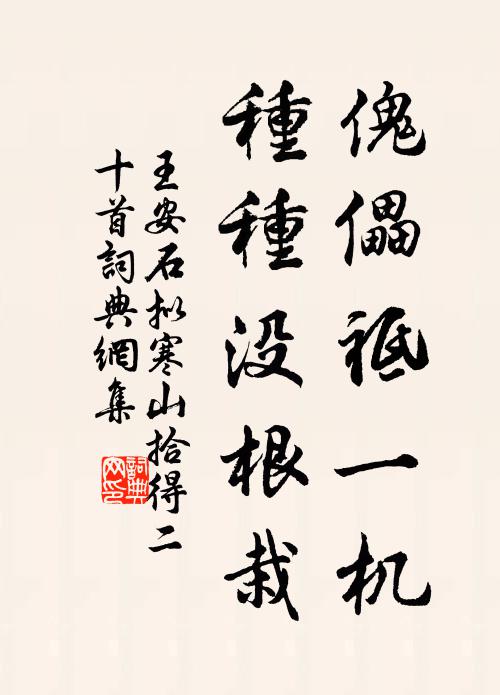 傀儡祗一机
種種没根栽
王安石拟寒山拾得二
十首詞典網集
詞典
网印